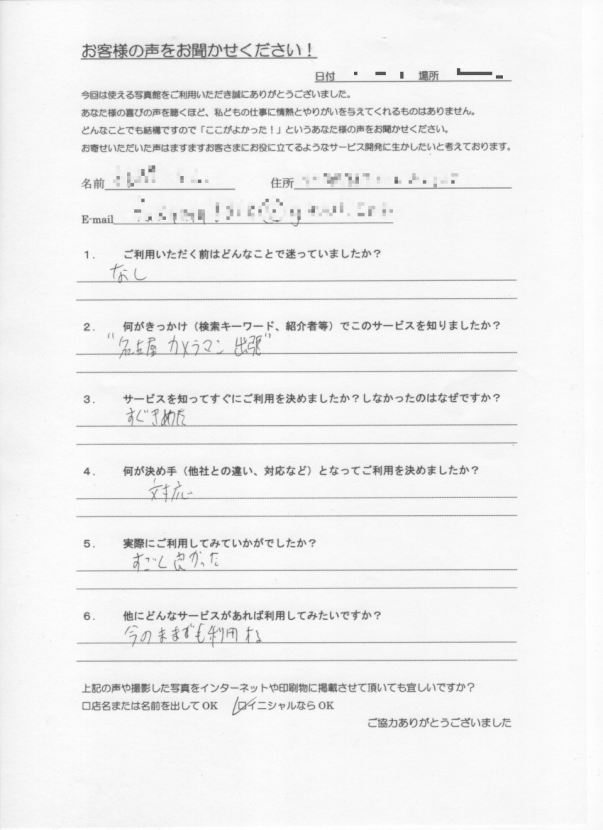 お客様の声をお聞かせください！
日付 場所
今回は使える写真館をご利用いただき誠にありがとうございました。
あなた様の喜びの声を聴くほど、私どもの仕事に情熱とやりがいを与えてくれるものはありません。
どんなことでも結構ですので「ここがよかった！」というあなた様の声をお聞かせください。
お寄せいただいた声はますますお客さまにお役に立てるようなサービス開発に生かしたいと考えております。
名前 住所
E-mail
１． ご利用いただく前はどんなことで迷っていましたか？
なし
２． 何がきっかけ（検索キーワード、紹介者等）でこのサービスを知りましたか？
"名古屋 カメラマン 出張"
３． サービスを知ってすぐにご利用を決めましたか？しなかったのはなぜですか？
すぐきめた
４． 何が決め手（他社との違い、対応など）となってご利用を決めましたか？
対応
５． 実際にご利用してみていかがでしたか？
すごく良かった
６． 他にどんなサービスがあれば利用してみたいですか？
今のままでも利用する
上記の声や撮影した写真をインターネットや印刷物に掲載させて頂いても宜しいですか？
□店名または名前を出してOK □イニシャルなら OK
ご協力ありがとうございました